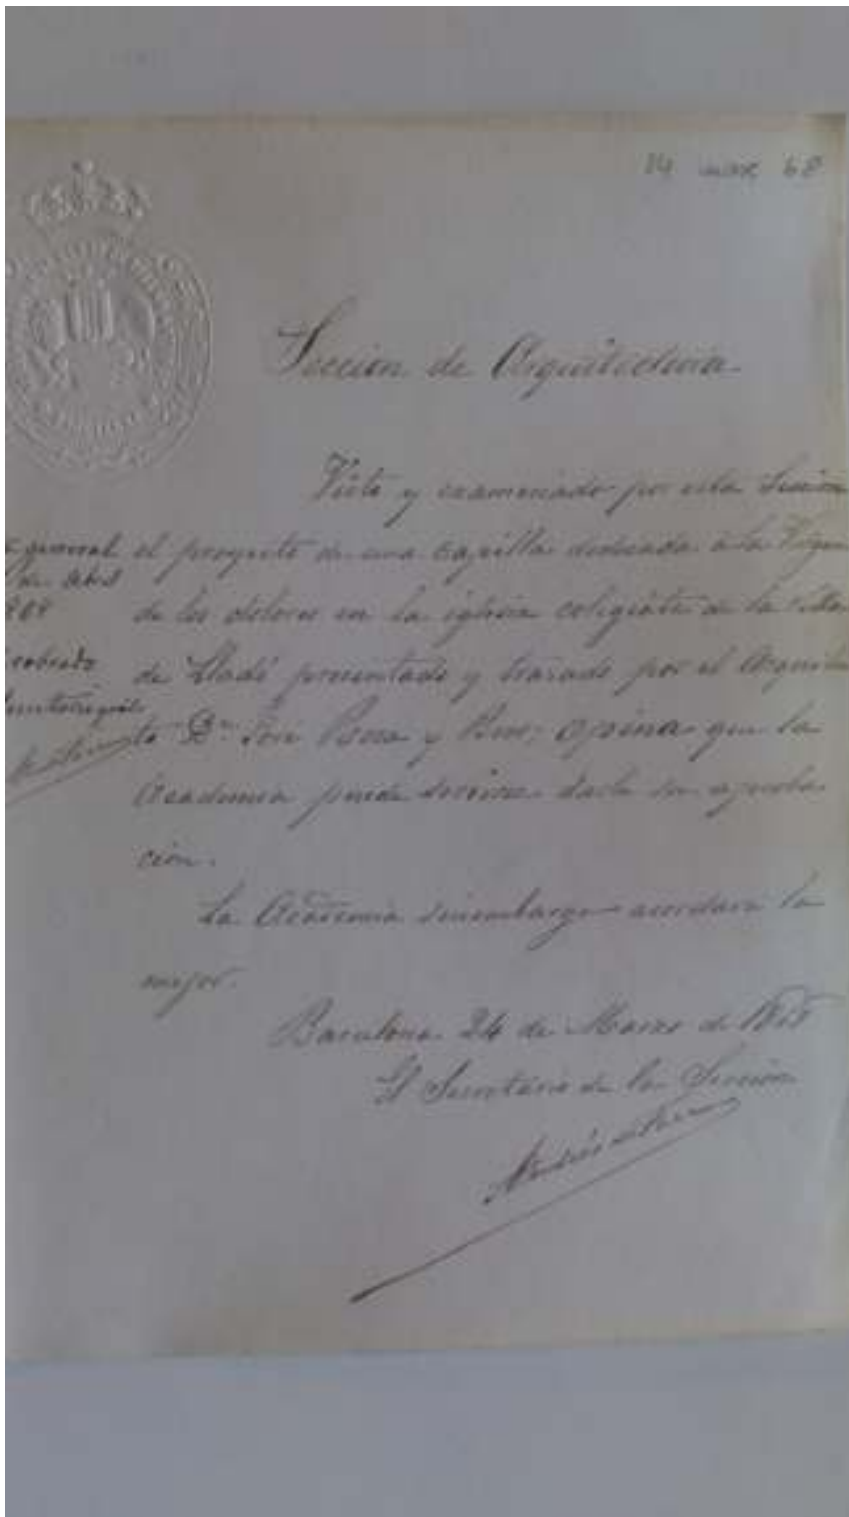 14 mar 68
Sección de Arquitectura.
Visto y examinado por esta Sección
el proyecto de una capilla dedicada a la Virgen
de los dolores en la iglesia colegiata de la
de Lladó presentado y trazado por el Arquitec
to Dn José y opina que la
Academia puede servirse darle su aproba
ción.
La Academia sinembargo acordará lo
mejor.
Barcelona 24 de Marzo de
El Secretario de la Sección
general
de Abril